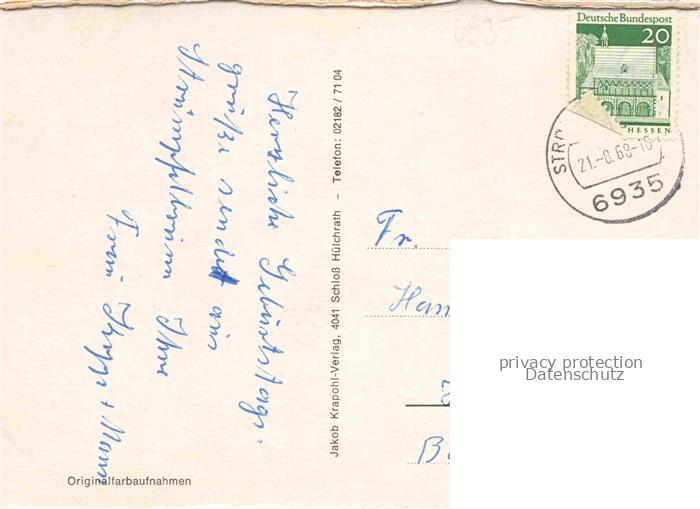 6935
Deutsche Bundespost
20
HESSEN
STR
21.-8.68-16
6935
Herzliche Geburtstags-
grüße sendet aus
Strümpfelbrunn Ihre
Frau + Mann
Jakob Krapohl-Verlag, 4041 Schloß Hülchrath – Telefon: 02182 / 71 04
Fr.
Han
Ba
privacy protection
Datenschutz
Originalfarbaufnahmen